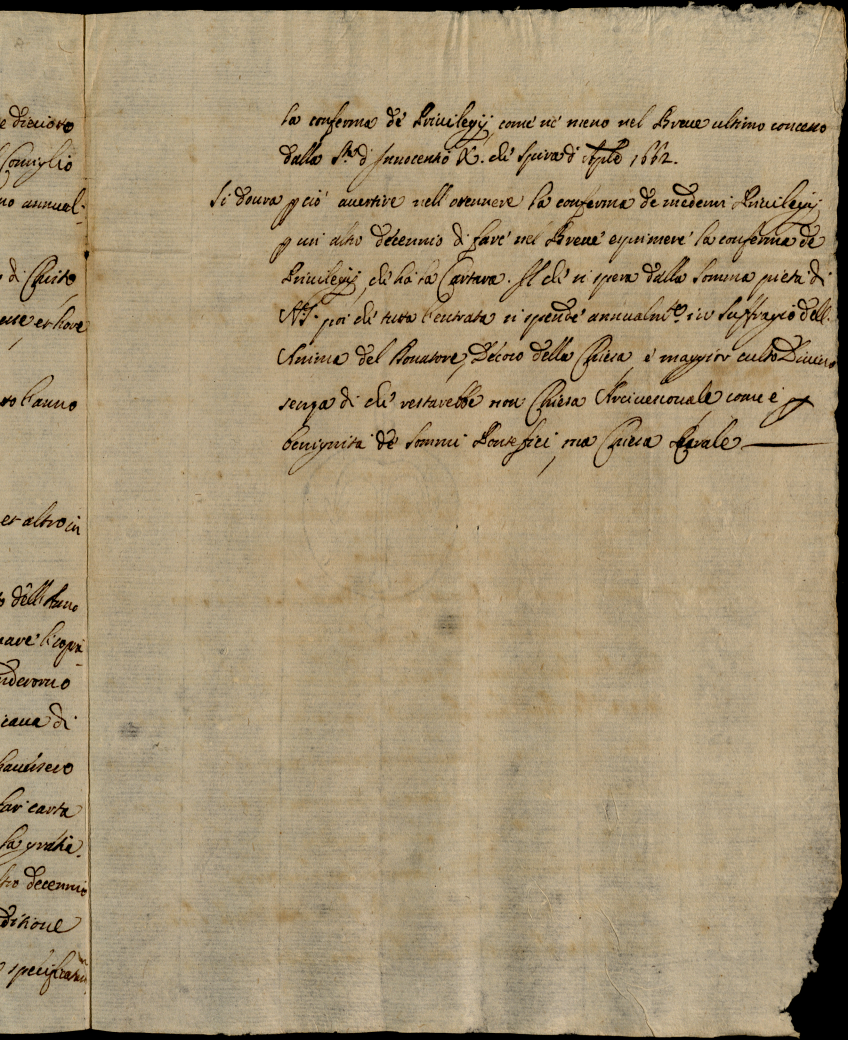 e dieciotto
Consiglio
no annual:
o di Christo
ense et hore
tto l'anno
et altro in
dell'Anno
nderono
caua di
hauessero
far carta
la gratia.
tro decennio
ditione
la conferma de' Priuilegij, come ne meno nel Breue ultimo concesso
dalla S.tà di Innocentio X. che spira di Aple 1662.
Si dourà p ciò auertire nell'ottenere la conferma de medemi Priuilegij
p un altro decennio di fare nel Breue esprimere la conferma de
Priuilegij, che hà la Cartara. Il che si spera dalla somma pietà di
N.S. poi che tutta l'entrata si spende annualm.te in suffragio dell'
Anima del Donatore, Decoro della Chiesa, e maggior culto Diuino
senza di che restarebbe non Chiesa Arciuescouale come è p
benignità de Sommi Pontefici, ma Chiesa Rurale